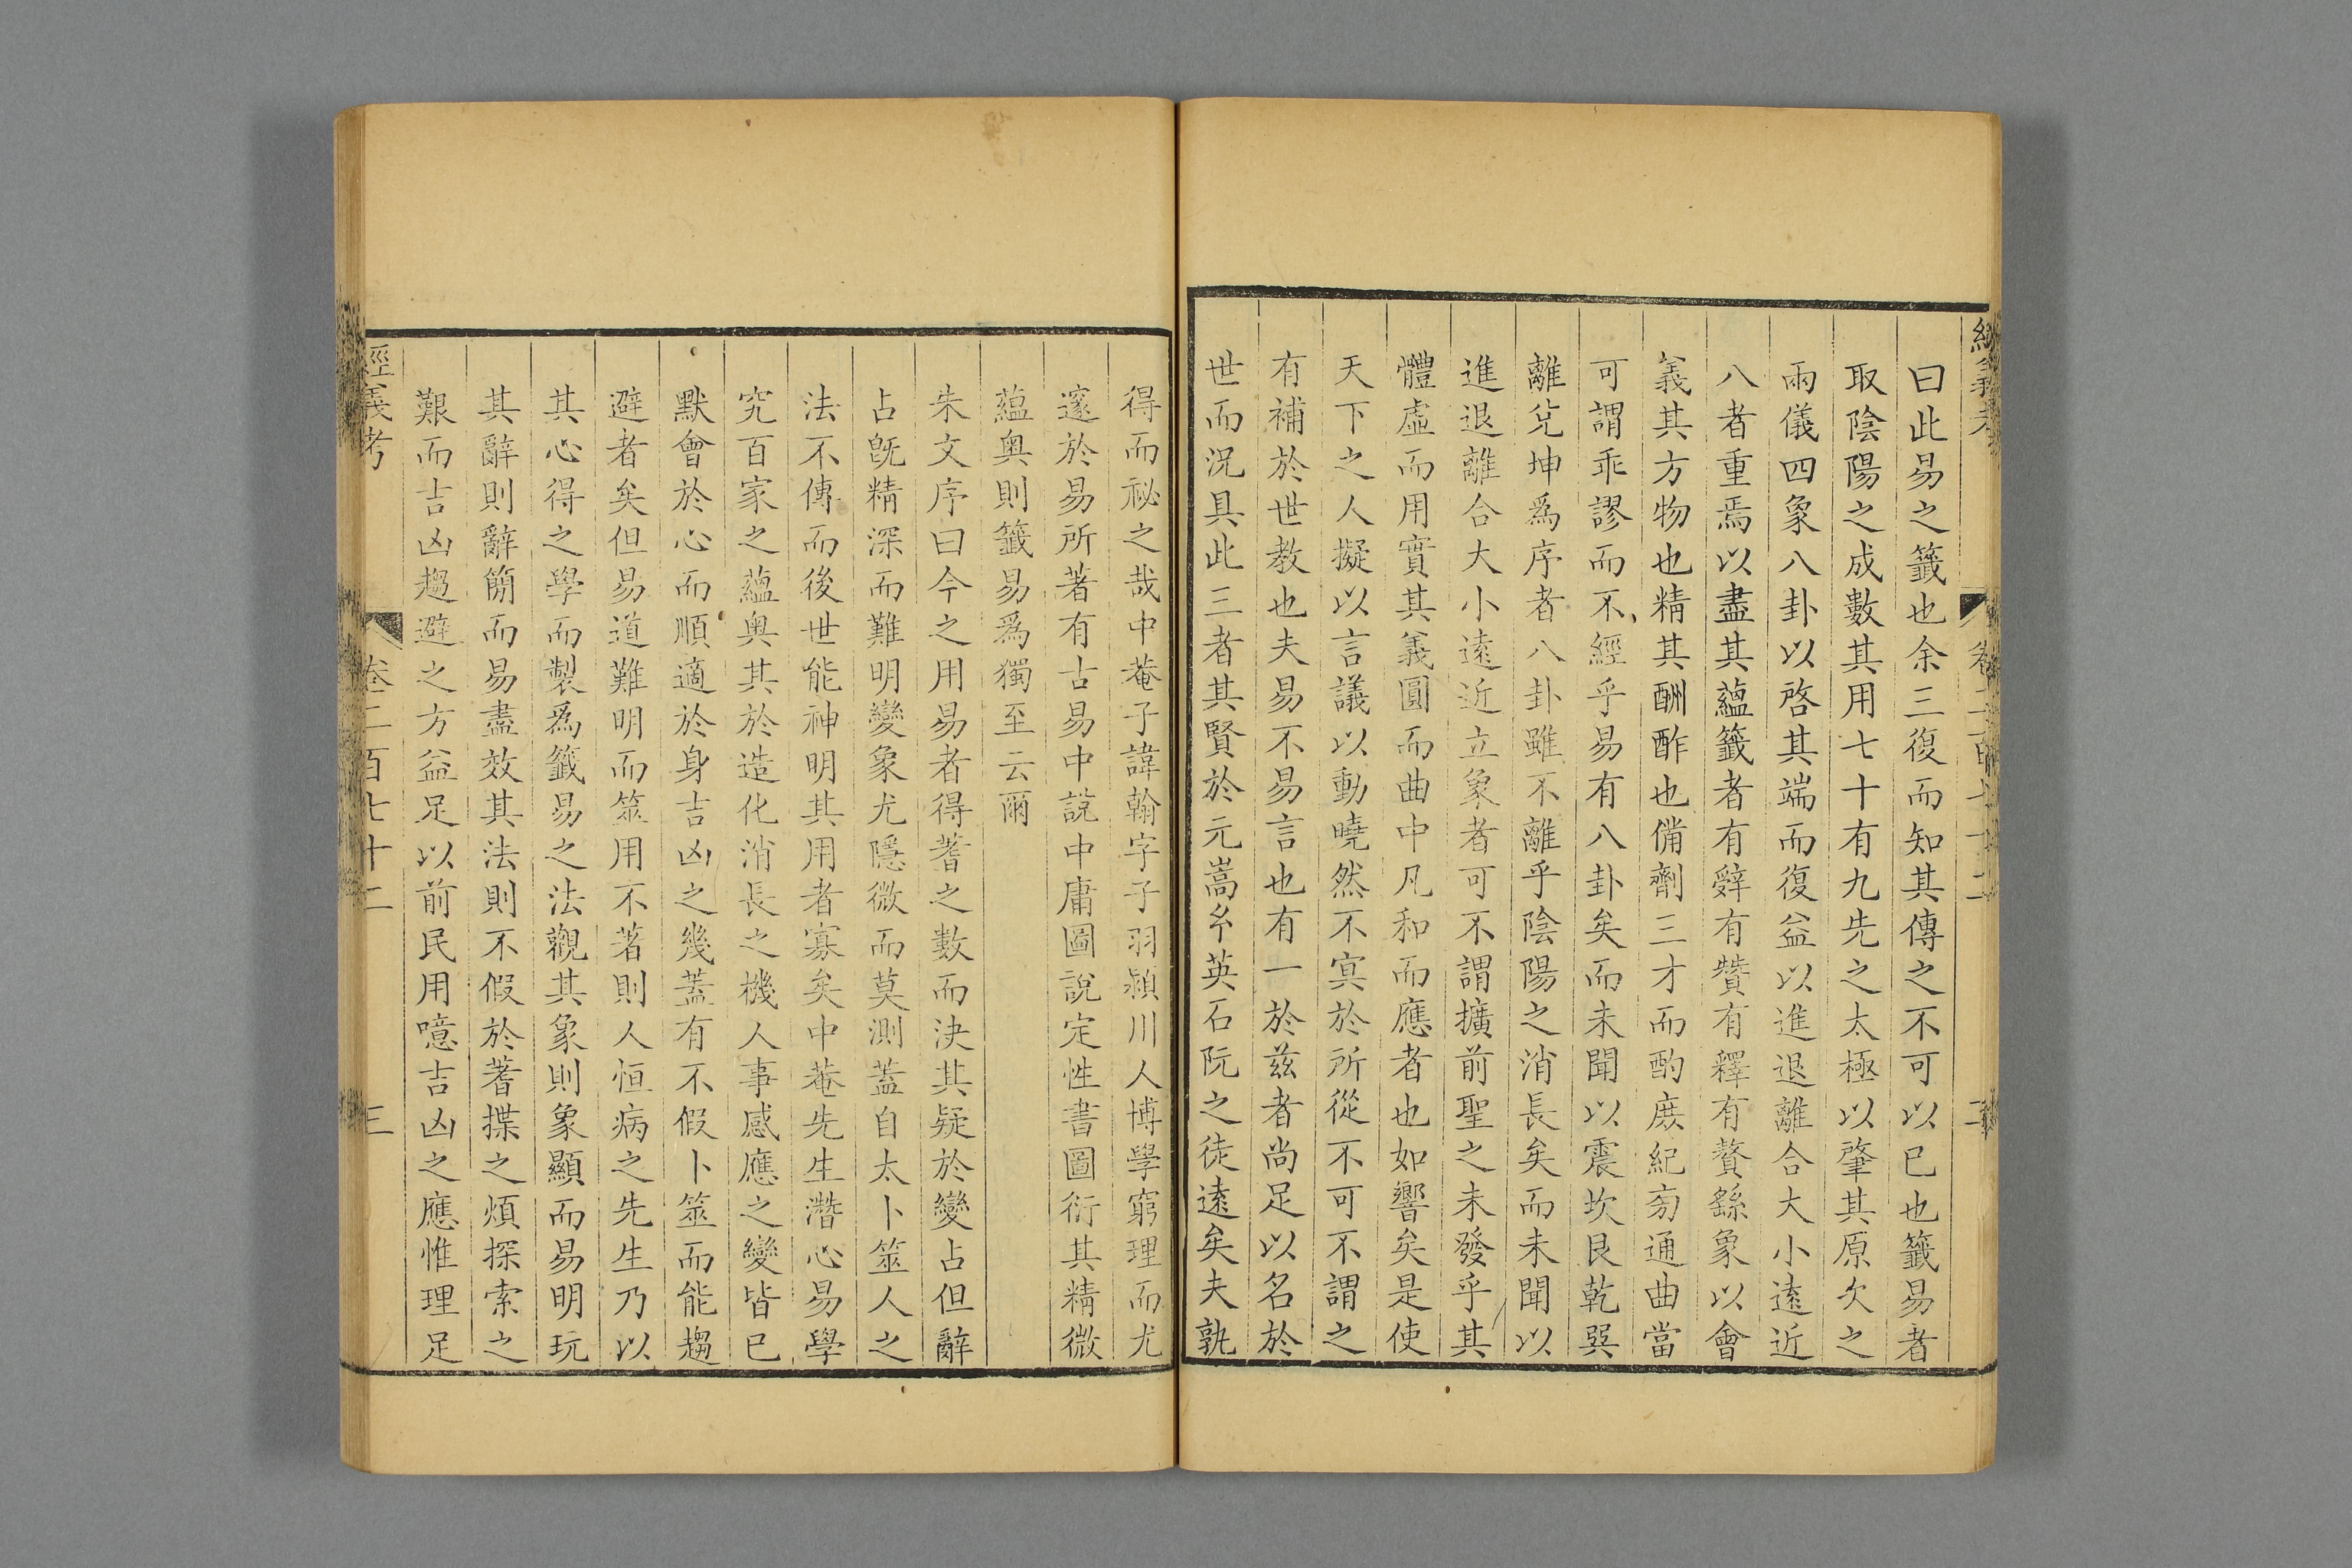 曰此易之籤也余三復而知其傳之不可以已也籤易者
取陰陽之成數其用七十有九先之太極以肇其原次之
兩儀四象八卦以啓其端而復益以進退離合大小遠近
八者重焉以盡其蘊籤者有辭有贊有釋有贅繇象以會
義其方物也精其酬酢也備劑三才而酌庶紀旁通曲當
可謂乖謬而不經乎易有八卦矣而未聞以震坎艮乾巽
離兌坤爲序者八卦雖不離乎陰陽之消長矣而未聞以
進退離合大小遠近立象者可不謂擴前聖之未發乎其
體虛而用實其義圓而曲中凡和而應者也如響矣是使
天下之人擬以言議以動曉然不冥於所從不可不謂之
有補於世教也夫易不易言也有一於茲者尚足以名於
世而況具此三者其賢於元嵩令英石阮之徒遠矣夫孰
得而祕之哉中菴子諱翰字子羽潁川人博學窮理而尤
邃於易所著有古易中說中庸圖說定性書圖衍其精微
蘊奧則籤易爲獨至云爾
朱文序曰今之用易者得蓍之數而決其疑於變占但辭
占旣精深而難明變象尤隱微而莫測蓋自太卜筮人之
法不傳而後世能神明其用者寡矣中菴先生潛心易學
究百家之蘊奧其於造化消長之機人事感應之變皆已
默會於心而順適於身吉凶之幾蓋有不假卜筮而能趨
避者矣但易道難明而筮用不著則人恒病之先生乃以
其心得之學而製爲籤易之法觀其象則象顯而易明玩
其辭則辭簡而易盡效其法則不假於蓍揲之煩探索之
艱而吉凶趨避之方益足以前民用噫吉凶之應惟理足
經義考 卷二百七十二 三